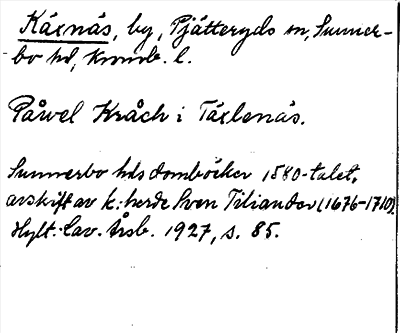 Käxnäs, by, Pjätteryds sn, Sunner-
bo hd, Kronob. l.
Påwel Kråch i Täxlenäs.
Sunnerbo hds domböcker 1580-talet,
avskift av k:herde Sven Tiliander (1676-1710).
Hylt.-Cav. Årsb. 1927, s. 85.